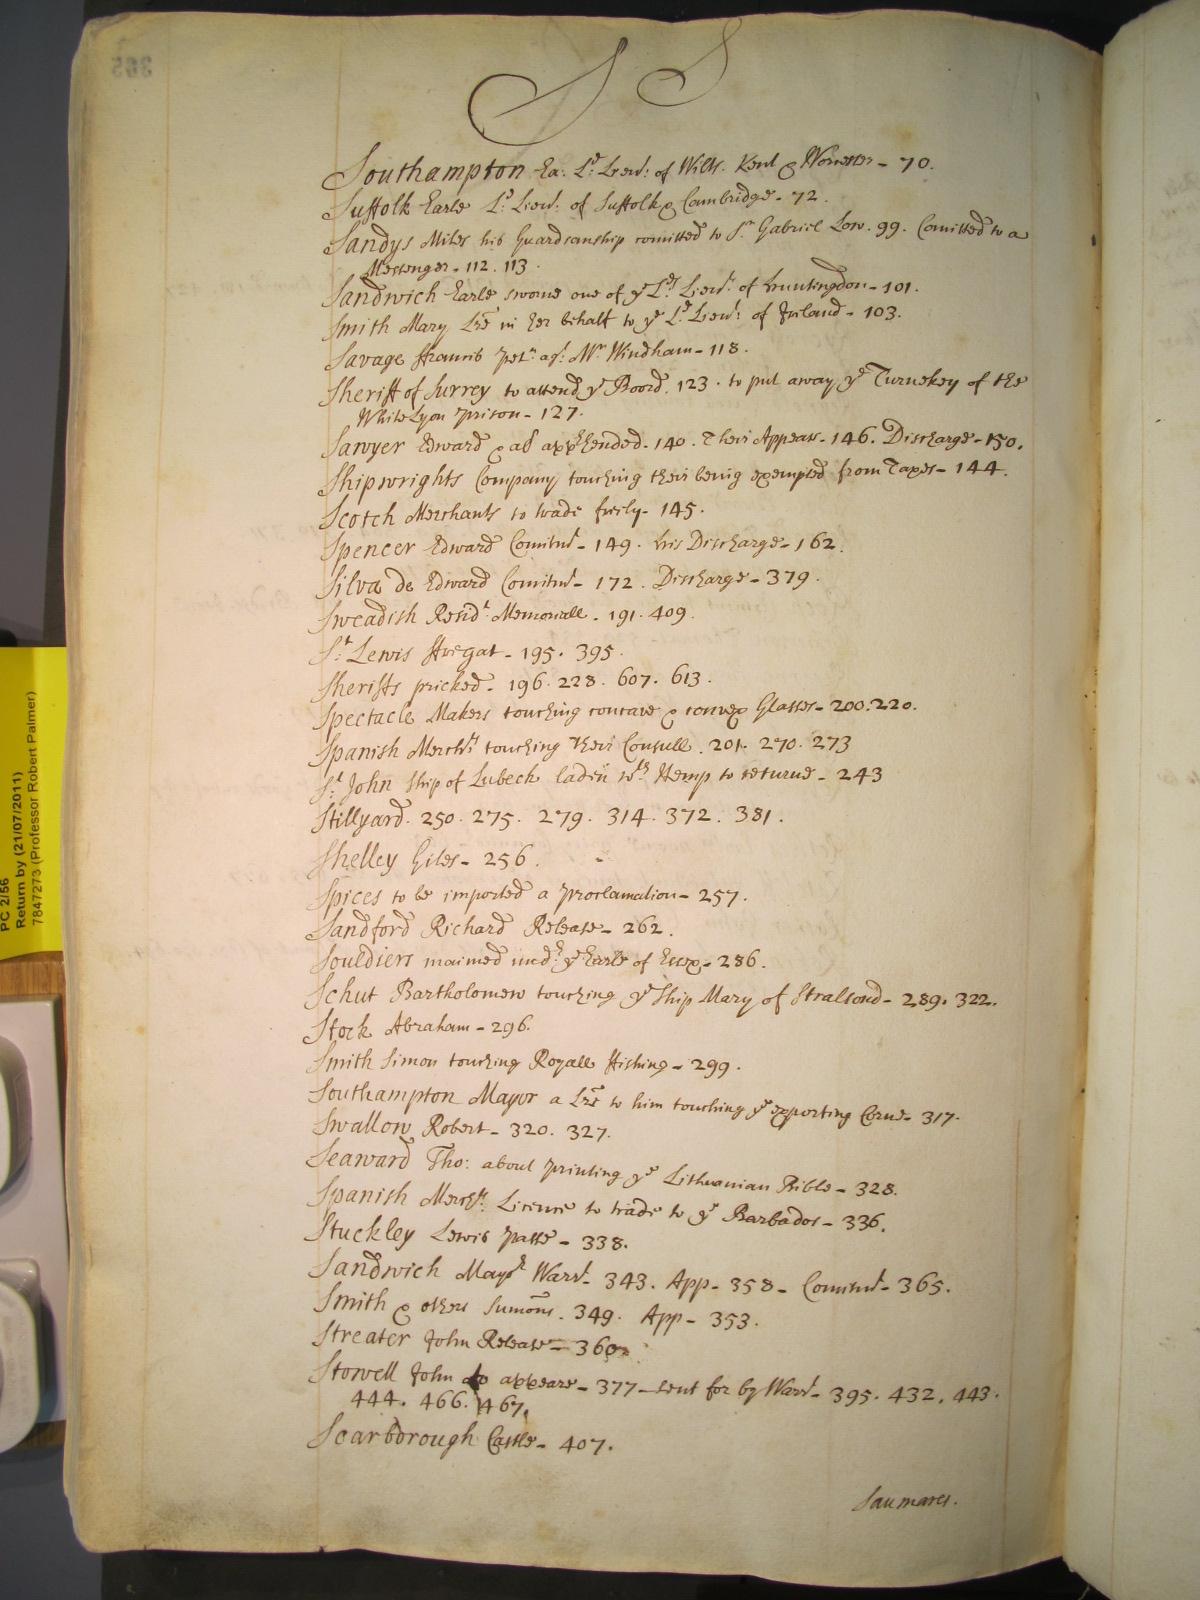 S S
Southampton Ea: Ld. Lieut: of Wilts. Kent & Worcester - 70.
Suffolk Earle Ld. Lieut: of Suffolk & Cambridge - 72.
Sandys Miles his Guardianship comitted to Sr. Gabriel Low. 99. Comitted to a
Messenger - 112. 113.
Sandwich Earle sworne one of ye Lds. Lieuts. of Huntingdon - 101.
Smith Mary Lre in her behalf to ye Ld. Lieut: of Ireland - 103.
Savage Francis Petn. agt: Mr. Windham - 118.
Sheriff of Surrey to attend ye Boord. 123. to put away ye Turnekey of the
White Lyon Prison - 127.
Sawyer Edward & al apprhended. 140. Their Appear. - 146. Discharge - 150.
Shipwrights Company touching their being exempted from Taxes - 144.
Scotch Merchants to trade freely - 145.
Spencer Edward Comitmt. - 149. his Discharge - 162.
Silva de Edward Comitmt. - 172. Discharge - 379.
Sweadish Residt. Memoriall. 191. 409.
St. Lewis Fregat - 195. 395.
Sheriffs pricked. 196. 228. 607. 613.
Spectacle Makers touching concave & convex Glasses - 200. 220.
Spanish Merchts. touching their Consull. 201. 270. 273
St. John Ship of Lubeck laden wth. Hemp to returne - 243
Stillyard. 250. 275. 279. 314. 372. 381.
Shelley Giles - 256.
Spices to be imported a Proclamation - 257.
Sandford Richard Release - 262.
Souldiers maimed undr. ye Earle of Essex - 286.
Schut Bartholomew touching ye Ship Mary of Stralsond - 289. 322.
Stock Abraham - 296.
Smith Simon touching Royall Fishing - 299.
Southampton Mayor a Lre to him touching ye exporting Corne - 317.
Swallow Robert - 320. 327.
Seaward Tho: about printing ye Lithuanian Bible - 328.
Spanish Merchts. Licence to trade to ye Barbados - 336.
Stuckley Lewis Passe - 338.
Sandwich Mayor Warrt. 343. App - 358 - Comitmt. - 365.
Smith & others Sumons. 349. App - 353.
Streater John Release - 360.
Stowell John to appeare - 377 - sent for by Warrt. - 395. 432. 443.
444. 466. 467.
Scarborough Castle - 407.
Saumares.
PC 2/56
Return by (21/07/2011)
7847273 (Professor Robert Palmer)